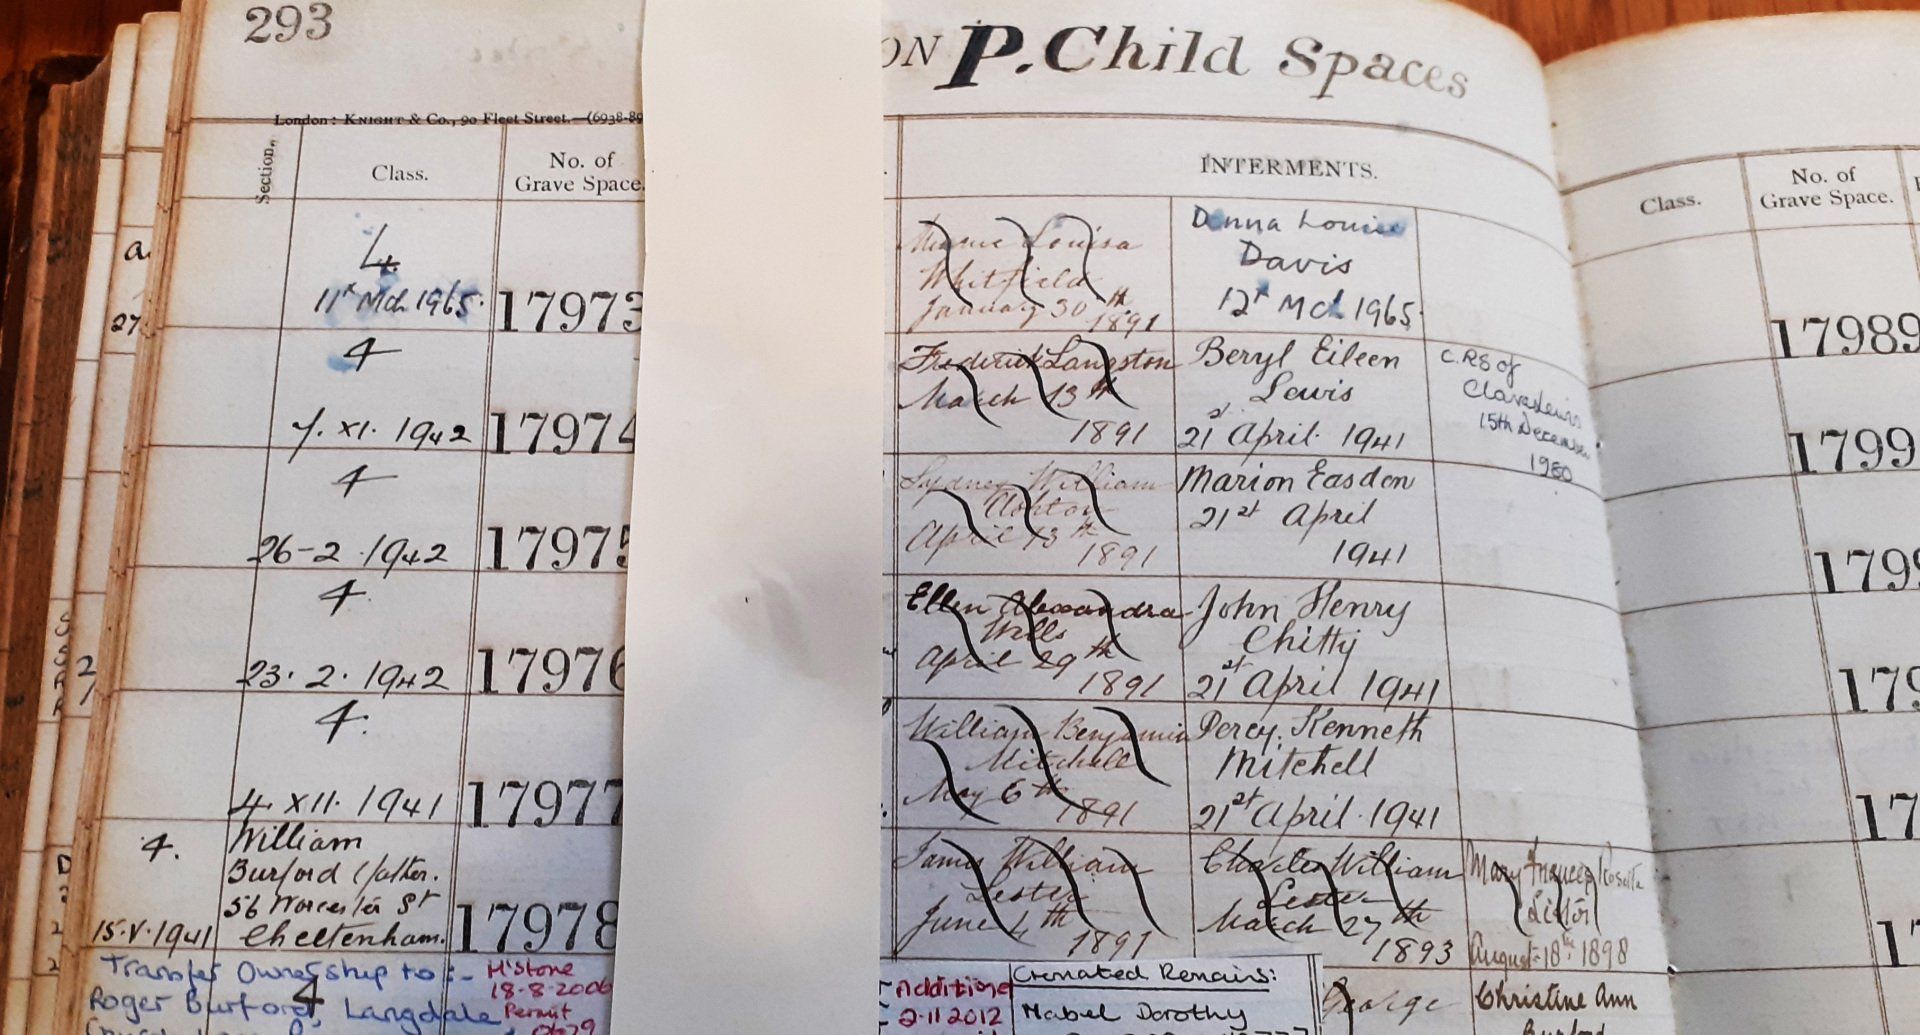 293
ON P. Child Spaces
London: KNIGHT & Co., 90 Fleet Street.—(6938-89
Section.
Class.
No. of
Grave Space.
INTERMENTS.
Class.
No. of
Grave Space.
4
11th Mch 1965.
17973
Louisa
Whitfield
January 30th
1891
Donna Louise
Davis
12th Mch 1965.
17989
4
7. XI. 1942
17974
Frederick Langston
March 13th
1891
Beryl Eileen
Lewis
21st April. 1941
C.RS of
Clara Lewis
15th December
1980
1799
4
26-2.1942
17975
Sydney William
Ashton
April 13th
1891
Marion Easden
21st April
1941
4.
23.2.1942
17976
Ellen Alexandra
Wills
April 29th
1891
John Henry
Chitty
21st April 1941
4.
4. XII. 1941
17977
William Benjamin
Mitchell
May 6th
1891
Percy. Kenneth
Mitchell
21st April. 1941
4.
15.V.1941
William
Burford (father.
56 Worcester St
Cheltenham.
17978
James William
Lester
June 4th
1891
Charles William
Lester
March 27th
1893
Mary Frances Rosetta
Lester
August 18th 1898
Transfer Ownership to:-
Roger Burford, Langdale
4
H'Stone
18-8-2006
Permit
0679
Additional
2-11 2012
Cremated Remains:
Mabel Dorothy
George
Christine Ann
Burford